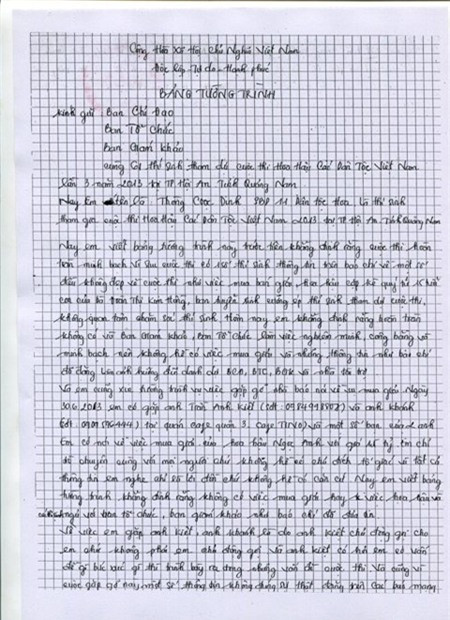 Cộng Hòa Xã Hội Chủ Nghĩa Việt Nam
Độc lập - Tự do - Hạnh phúc
BẢNG TƯỜNG TRÌNH
Kính gửi Ban Chỉ Đạo
Ban Tổ Chức
Ban Giám Khảo
cùng các thí sinh tham dự cuộc thi Hoa Hậu Các Dân Tộc Việt Nam
lần 3 năm 2013 tại TP Hội An Tỉnh Quảng Nam
Nay em tên là: Thông Cẩm Dinh SBD 11 Dân tộc Hoa, là thí sinh
tham gia cuộc thi Hoa Hậu Các Dân Tộc Việt Nam 2013 tại TP Hội An Tỉnh Quảng Nam
Nay em viết bảng tường trình này trước tiên khẳng định rằng cuộc thi hoàn
toàn minh bạch vì sau cuộc thi có 1 số thí sinh thông tin trên báo chí về một số
điều không đẹp về cuộc thi như việc mua bán giải hoa hậu
của bà Đoàn Thị Kim Hồng, ban tuyển sinh thí sinh tham dự cuộc thi,
không quan tâm chăm sóc thí sinh Hôm nay em khẳng định rằng hoàn toàn
không có và Ban Giám khảo, Ban Tổ Chức làm việc nghiêm minh, công bằng và
minh bạch nên không hề có việc mua giải và những thông tin như báo chí
đã đăng làm ảnh hưởng đến danh dự BCĐ, BTC, BGK và nhà tài trợ
Và em cũng xin tường trình vụ việc gặp gỡ nhà báo nói về vụ mua giải Ngày
30.6.2013 em có gặp anh Trần Anh Kiệt và anh Khánh
tại quán cafe quận 3, cafe TINO và một số bạn của 2 anh
Em có nói về việc mua giải của hoa hậu Ngọc Anh với giá tỉ em chỉ
trò chuyện cùng với mọi người chứ không hề có chủ đích tố giác vì tất cả
thông tin em nghe chỉ là lời đồn chứ không hề có căn cứ. Nay em viết bảng
tường trình khẳng định rằng không có việc mua giải hay việc hoa hậu và
ngủ với ban tổ chức, ban giám khảo như báo chí đã đưa tin
Về việc em gặp anh Kiệt, anh Khánh là do anh Kiệt chủ động gọi cho
em chứ không phải em chủ động gọi và anh Kiệt có hỏi em có vấn
đề gì bức xúc gì thì trình bày ra đừng những vấn đề cuộc thi Và cũng vì
cuộc gặp gỡ này một số thông tin không đúng sự thật đăng trên các báo mạng